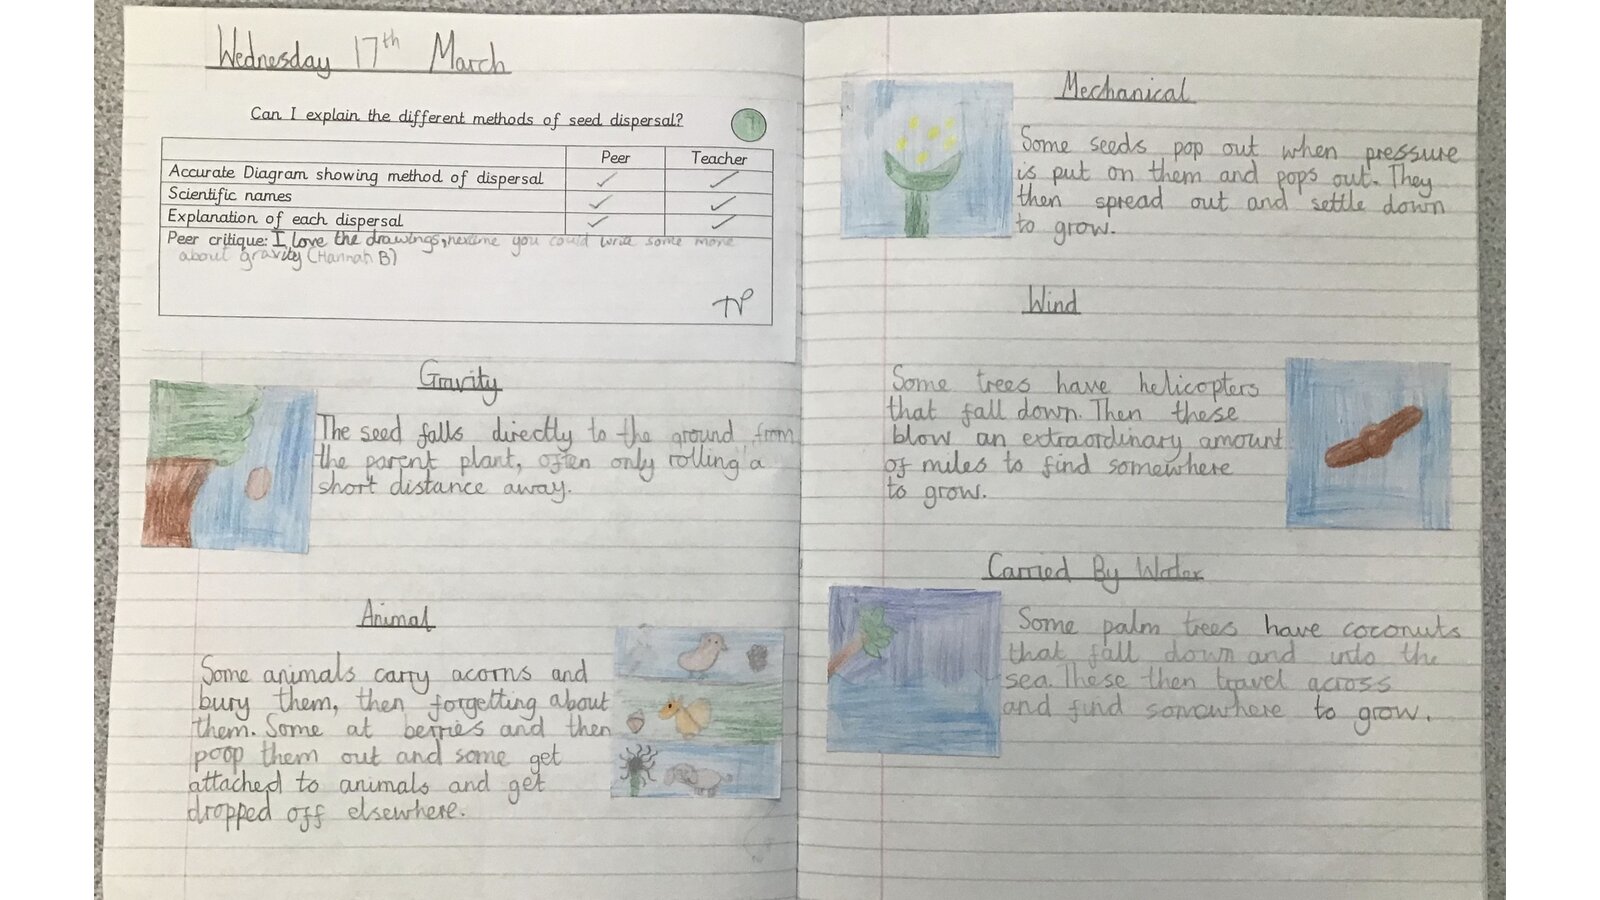 Wednesday 17th March
Can I explain the different methods of seed dispersal?
Peer Teacher
Accurate Diagram showing method of dispersal ✓ ✓
Scientific names ✓ ✓
Explanation of each dispersal ✓ ✓
Peer critique: I love the drawings, nextime you could write some more
about gravity (Hannah B)
TP
Gravity
The seed falls directly to the ground from
the parent plant, often only rolling a
short distance away.
Animal
Some animals carry acorns and
bury them, then forgetting about
them. Some at berries and then
poop them out and some get
attached to animals and get
dropped off elsewhere.
Mechanical
Some seeds pop out when pressure
is put on them and pops out. They
then spread out and settle down
to grow.
Wind
Some trees have helicopters
that fall down. Then these
blow an extraordinary amount
of miles to find somewhere
to grow.
Carried By Water
Some palm trees have coconuts
that fall down and into the
sea. These then travel across
and find somowhere to grow.